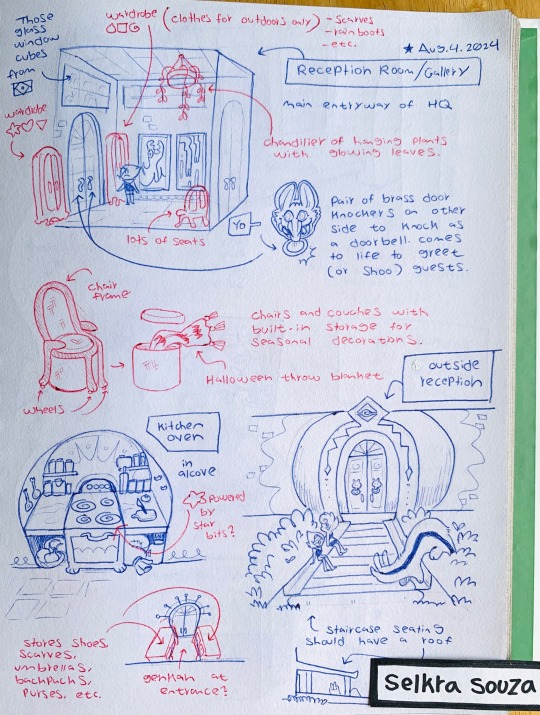 Those
glass
window
cubes
from
wardrobe
(clothes for outdoors only)
- Scarves
- rainboots
- etc.
★ Aug. 4. 2024
Reception Room/Gallery
main entryway of HQ
wardrobe
chandilier of hanging plants
with glowing leaves.
lots of seats
Yo
Pair of brass door
knockers on other
side to knock as
a doorbell. comes
to life to greet
(or shoo) guests.
chair
frame
wheels
Chairs and couches with
built-in storage for
seasonal decorations.
Halloween throw blanket
outside
reception
Kitchen
oven
in
alcove
Powered
by
star
bits?
stores shoes,
scarves,
umbrellas,
backpacks,
purses, etc.
genkan at
entrance?
staircase seating
should have a roof
Selkra Souza